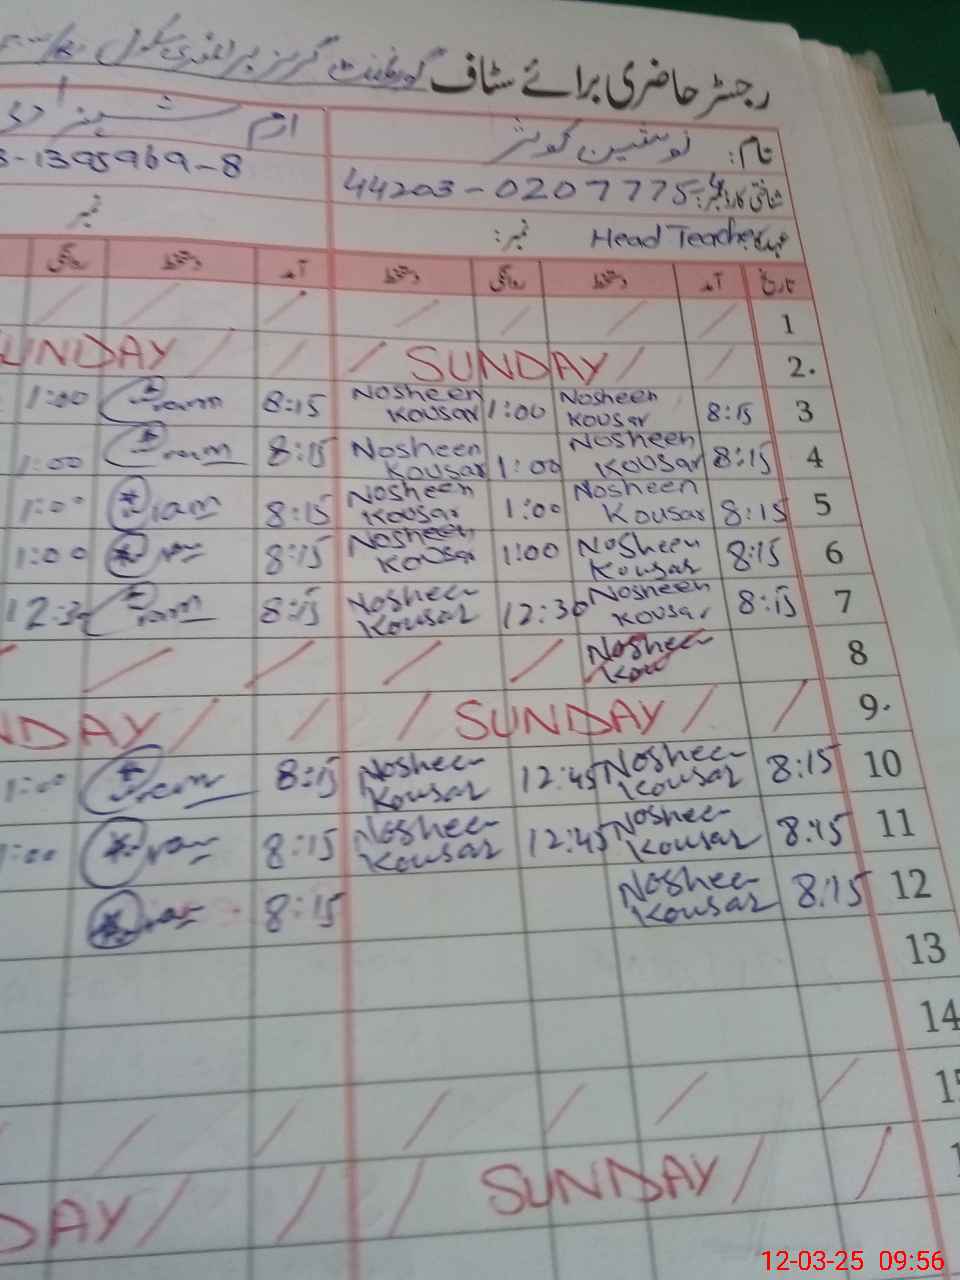 رجسٹر حاضری برائے سٹاف گورنمنٹ گرلز پرائمری سکول
نام: نوشین کوثر
شناختی کارڈ نمبر: 44203-0207775-4
عہدہ: Head Teacher نمبر:
ارم
-1395969-8
نمبر
تاریخ آمد دستخط روانگی دستخط آمد دستخط روانگی
1
2. SUNDAY SUNDAY
3 8:15 Nosheen Kousar 1:00 Nosheen Kousar 8:15 1:00
4 8:15 Nosheen Kousar 1:00 Nosheen Kousar 8:15 1:00
5 8:15 Nosheen Kousar 1:00 Nosheen Kousar 8:15 1:00
6 8:15 Nosheen Kousar 1:00 Nosheen Kousar 8:15 1:00
7 8:15 Nosheen Kousar 12:30 Nosheen Kousar 8:15 12:30
8 Nosheen Kou
9. SUNDAY NDAY
10 8:15 Nosheen Kousar 12:45 Nosheen Kousar 8:15 1:00
11 8:15 Nosheen Kousar 12:45 Nosheen Kousar 8:15 1:00
12 8:15 Nosheen Kousar 8:15
13
14
15
1 SUNDAY DAY
12-03-25 09:56